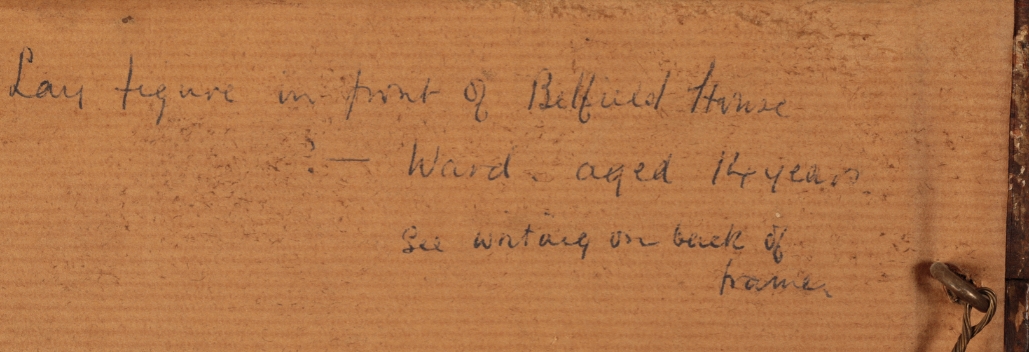 Lay figure in front of Belfield House
? — Ward. aged 14 years
See writing on back of
frame